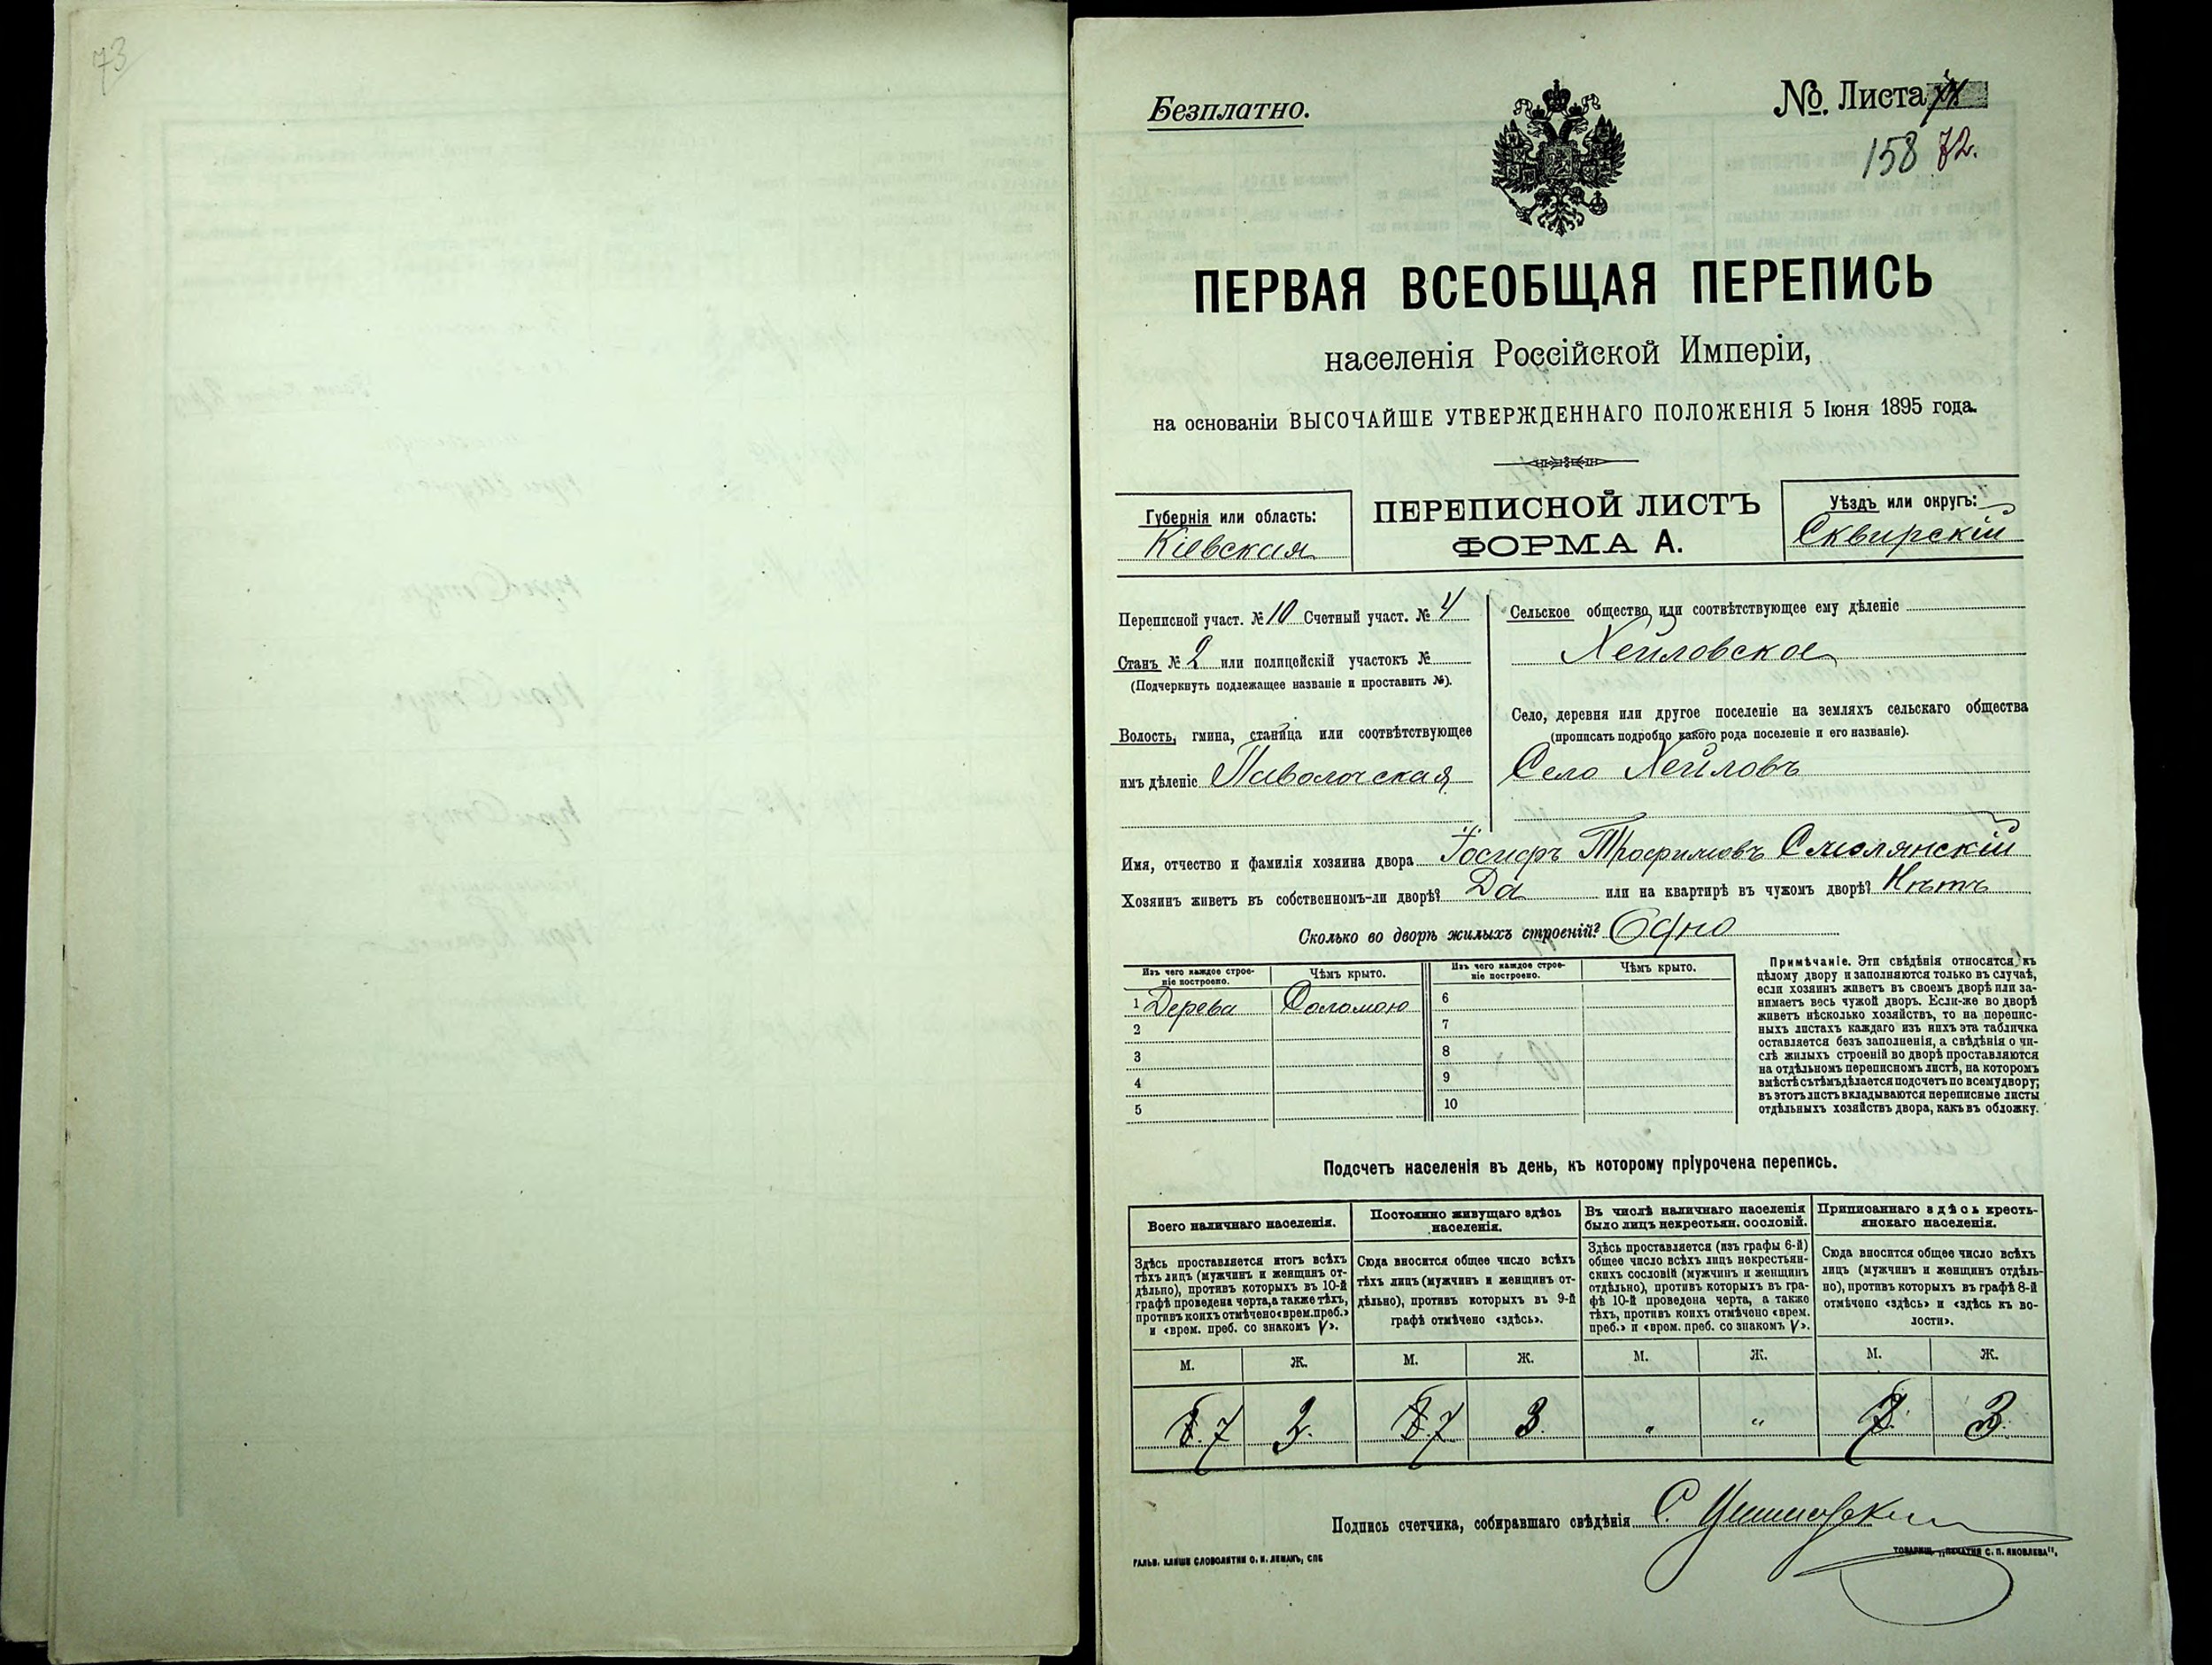 73
Безплатно.
№. Листа
158 72.
ПЕРВАЯ ВСЕОБЩАЯ ПЕРЕПИСЬ
населенія Россійской Имперіи,
на основаніи ВЫСОЧАЙШЕ УТВЕРЖДЕННАГО ПОЛОЖЕНІЯ 5 Іюня 1895 года.
Губернія или область:
Кіевская
ПЕРЕПИСНОЙ ЛИСТЪ
ФОРМА А.
Уѣздъ или округъ:
Сквирскій
Переписной участ. № 10 Счетный участ. № 4
Станъ № 2 или полицейскій участокъ №
(Подчеркнуть подлежащее названіе и проставить №).
Волость, гмина, станица или соотвѣтствующее
имъ дѣленіе Паволочская
Сельское общество или соотвѣтствующее ему дѣленіе
Хейловское
Село, деревня или другое поселеніе на земляхъ сельскаго общества
(прописать подробно какого рода поселеніе и его названіе).
Село Хейловъ
Имя, отчество и фамилія хозяина двора Іосифъ Трофимовъ Смолянскій
Хозяинъ живетъ въ собственномъ-ли дворѣ? Да или на квартирѣ въ чужомъ дворѣ? Нѣтъ
Сколько во дворѣ жилыхъ строеній? Одно
Изъ чего каждое строе-
ніе построено.
Чѣмъ крыто.
Изъ чего каждое строе-
ніе построено.
Чѣмъ крыто.
1 Дерева Соломою 6
2 7
3 8
4 9
5 10
Примѣчаніе. Эти свѣдѣнія относятся къ
цѣлому двору и заполняются только въ случаѣ,
если хозяинъ живетъ въ своемъ дворѣ или за-
нимаетъ весь чужой дворъ. Если-же во дворѣ
живетъ нѣсколько хозяйствъ, то на перепис-
ныхъ листахъ каждаго изъ нихъ эта табличка
оставляется безъ заполненія, а свѣдѣнія о чи-
слѣ жилыхъ строеній во дворѣ проставляются
на отдѣльномъ переписномъ листѣ, на которомъ
вмѣстѣ съ тѣмъ дѣлается подсчетъ по всему двору;
въ этотъ листъ вкладываются переписные листы
отдѣльныхъ хозяйствъ двора, какъ въ обложку.
Подсчетъ населенія въ день, къ которому пріурочена перепись.
Всего наличнаго населенія.
Здѣсь проставляется итогъ всѣхъ
тѣхъ лицъ (мужчинъ и женщинъ от-
дѣльно), противъ которыхъ въ 10-й
графѣ проведена черта, а также тѣхъ,
противъ коихъ отмѣчено «врем. преб.»
и «врем. преб. со знакомъ V».
Постоянно живущаго здѣсь
населенія.
Сюда вносится общее число всѣхъ
тѣхъ лицъ (мужчинъ и женщинъ от-
дѣльно), противъ которыхъ въ 9-й
графѣ отмѣчено «здѣсь».
Въ числѣ наличнаго населенія
было лицъ некрестьян. сословій.
Здѣсь проставляется (изъ графы 6-й)
общее число всѣхъ лицъ некрестьян-
скихъ сословій (мужчинъ и женщинъ
отдѣльно), противъ которыхъ въ гра-
фѣ 10-й проведена черта, а также
тѣхъ, противъ коихъ отмѣчено «врем.
преб.» и «врем. преб. со знакомъ V».
Приписаннаго здѣсь кресть-
янскаго населенія.
Сюда вносится общее число всѣхъ
лицъ (мужчинъ и женщинъ отдѣль-
но), противъ которыхъ въ графѣ 8-й
отмѣчено «здѣсь» и «здѣсь къ во-
лости».
М. Ж. М. Ж. М. Ж. М. Ж.
8. 7 2. 8. 7 3. " " 7. 3.
Подпись счетчика, собиравшаго свѣдѣнія С.
ГАЛЬВ. КЛИШЕ СЛОВОЛИТНИ О. И. ЛЕМАНЪ, СПБ
ТОВАРИЩ. „ПЕЧАТНЯ С. П. ЯКОВЛЕВА".